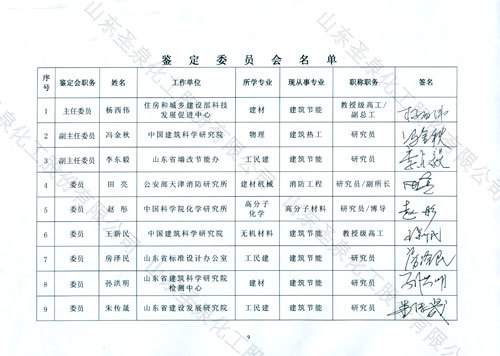 鉴定委员会名单
序号 鉴定会职务 姓名 工作单位 所学专业 现从事专业 职称职务 签名
1 主任委员 杨西伟 住房和城乡建设部科技发展促进中心 建材 建筑节能 教授级高工/副总工
2 副主任委员 冯金秋 中国建筑科学研究院 物理 建筑热工 研究员 冯金秋
3 副主任委员 李东毅 山东省墙改节能办 工民建 建筑节能 研究员 李东毅
4 委员 田亮 公安部天津消防研究所 建材机械 消防工程 研究员/副所长 田亮
5 委员 赵彤 中国科学院化学研究所 高分子化学 高分子材料 研究员/博导 赵彤
6 委员 王新民 中国建筑科学研究院 无机材料 建筑节能 教授级高工
7 委员 房泽民 山东省标准设计办公室 工民建 建筑节能 研究员 房泽民
8 委员 孙洪明 山东省建筑科学研究院检测中心 建材 建筑节能 研究员 孙洪明
9 委员 朱传晟 山东省建设发展研究院 工民建 建筑节能 研究员
9
山东圣泉化工股份有限公司